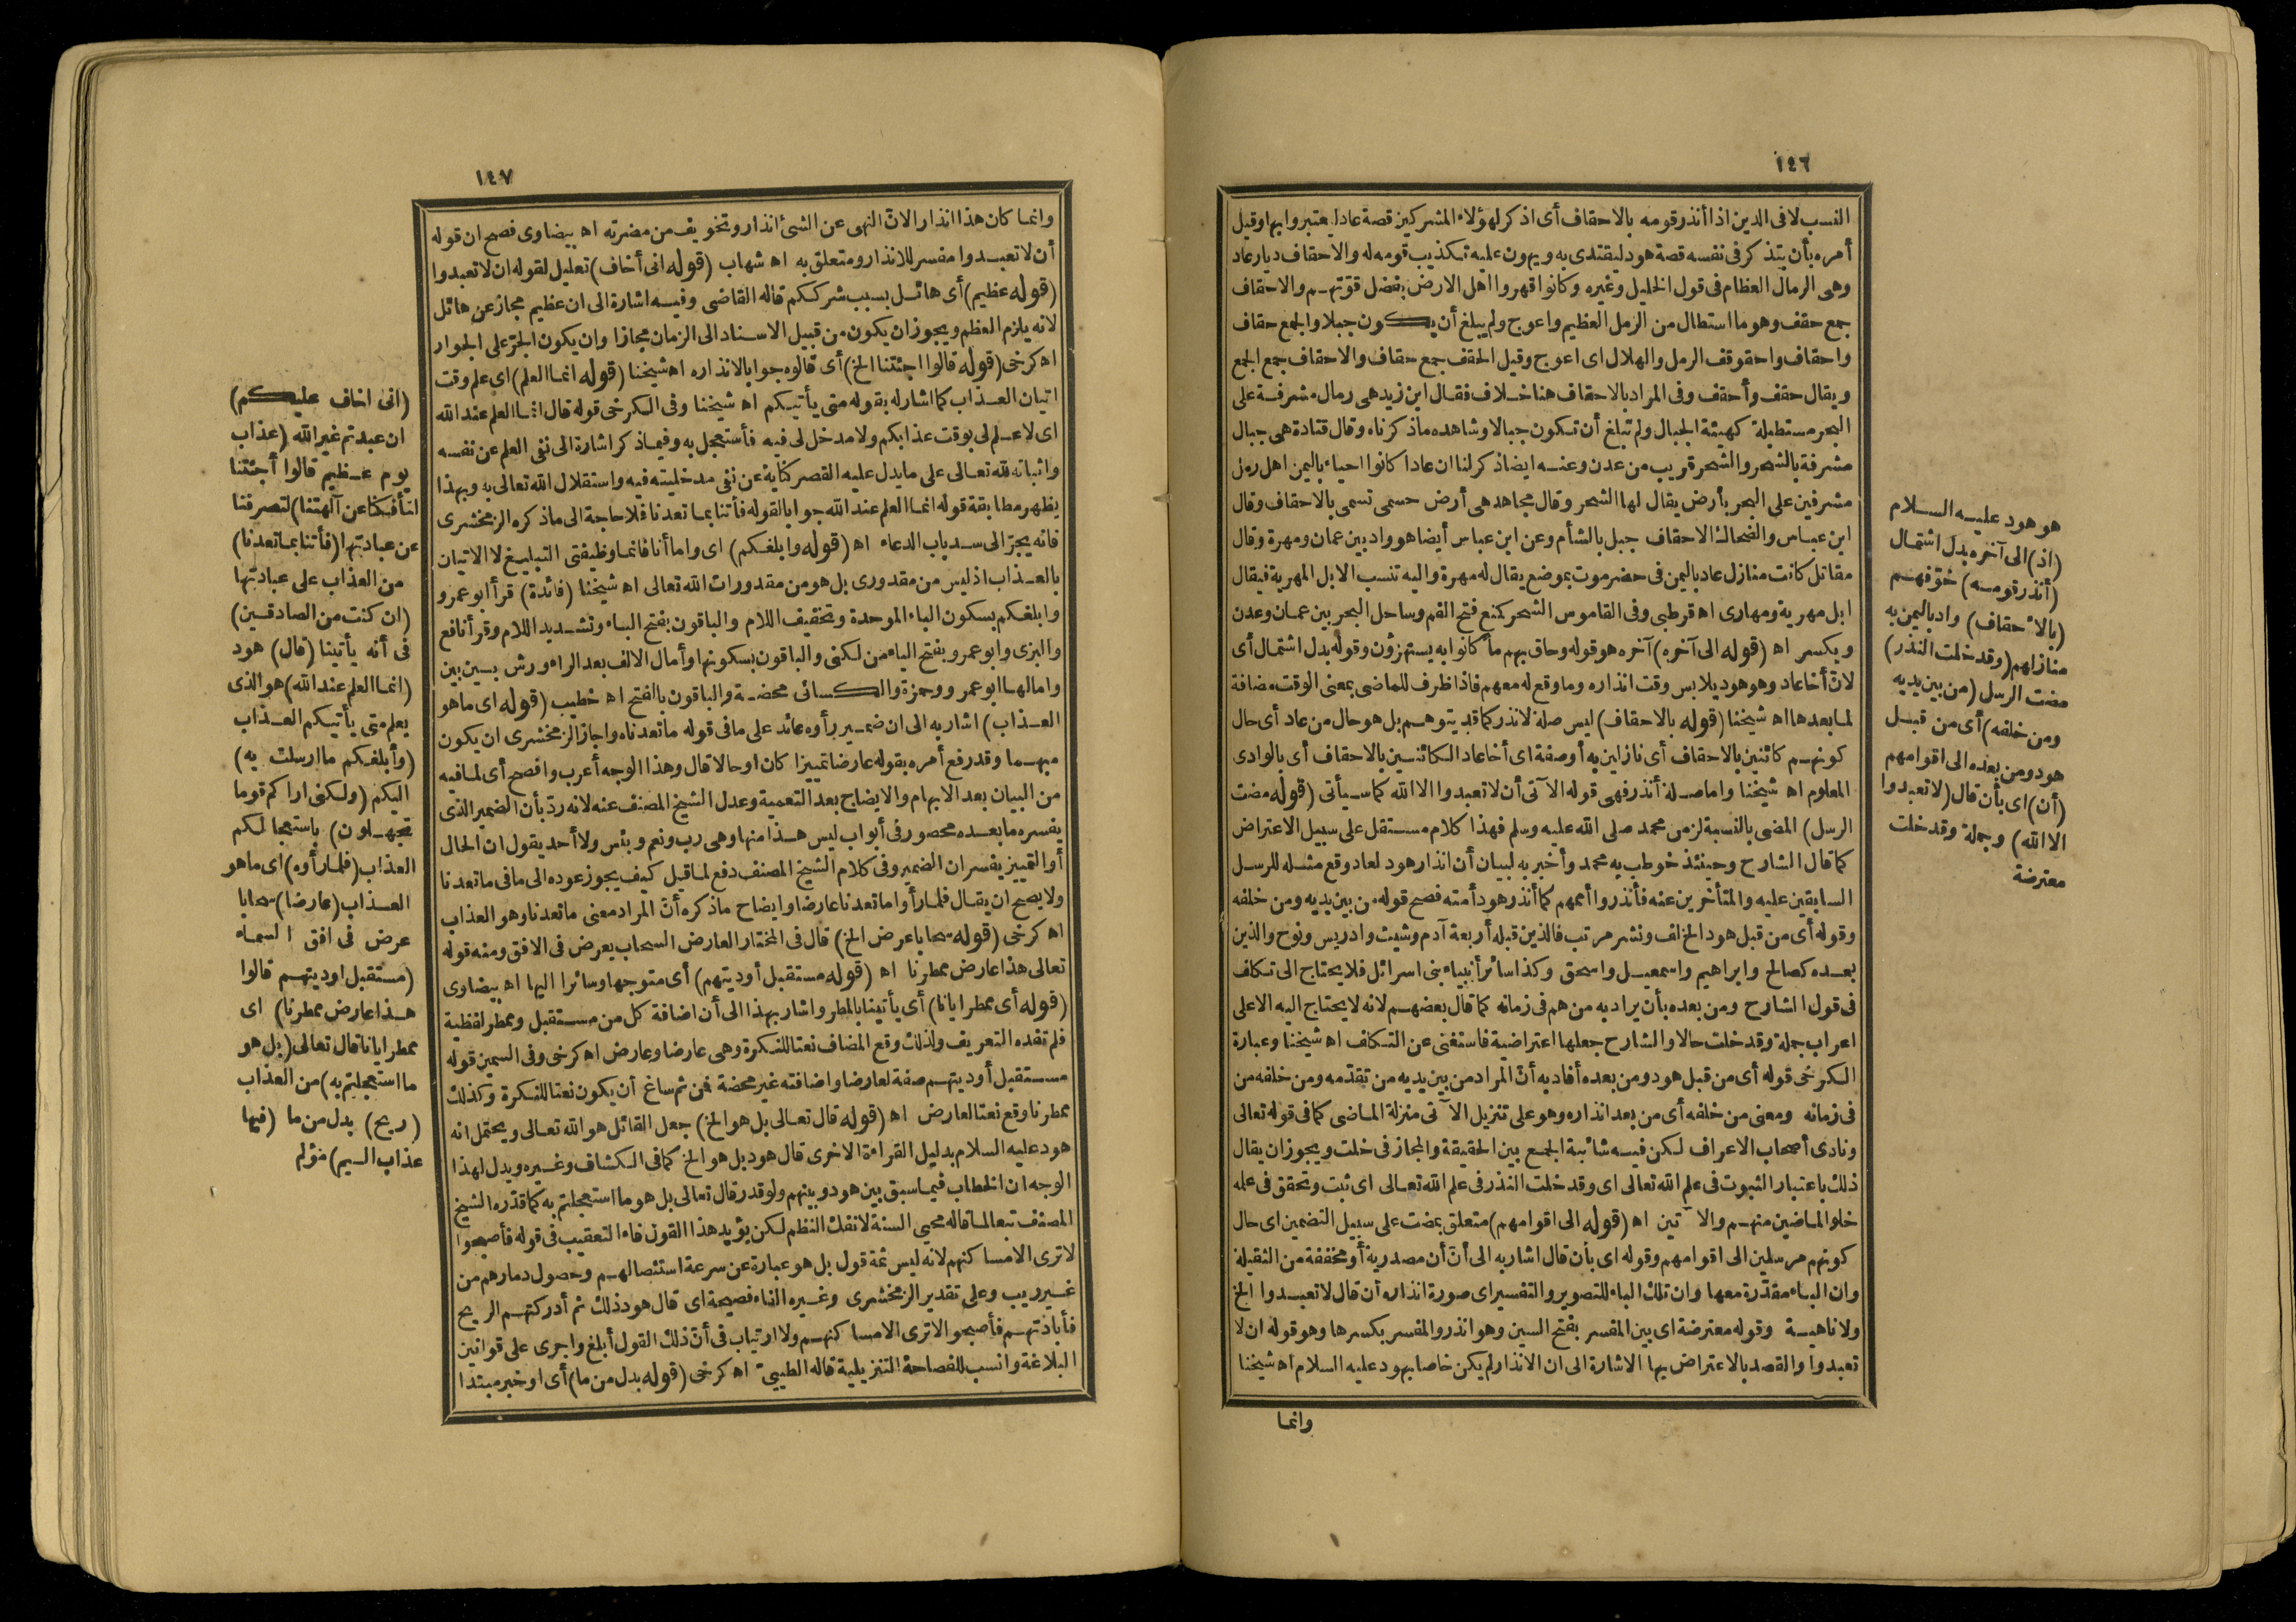 ١٤٦
النسب لا فى الدين اذا أنذر قومه بالاحقاف أى اذكر لهؤلاء المشركين قصة عاد ليعتبروا بها وقيل
أمره بأن يتذكر فى نفسه قصة هود ليقتدى به ويهون عليه تكذيب قومه له والاحقاف ديار عاد
وهى الرمال العظام فى قول الخليل وغيره وكانوا قهروا اهل الارض بفضل قوّتهم والاحقاف
جمع حقف وهو ما استطال من الرمل العظيم واعوج ولم يبلغ أن يكون جبلا والجمع حقاف
واحقاف واحقوقف الرمل والهلال اى اعوج وقيل الحقف جمع حقاف والاحقاف جمع الجمع
ويقال حقف وأحقف وفى المراد بالاحقاف هنا خلاف فقال ابن زيد هى رمال مشرفة على
البحر مستطيلة كهيئة الجبال ولم تبلغ أن تكون جبالا وشاهده ما ذكرناه وقال قتادة هى جبال
مشرفة بالشحر والشحر قريب من عدن وعنه ايضا ذكر لنا ان عادا كانوا احياء باليمن اهل رمل
مشرفين على البحر بأرض يقال لها الشحر وقال مجاهد هى أرض حسمى تسمى بالاحقاف وقال
ابن عباس والضحاك الاحقاف جبل بالشأم وعن ابن عباس أيضا هو واد بين عمان ومهرة وقال
مقاتل كانت منازل عاد باليمن فى حضرموت بموضع يقال له مهرة واليه تنسب الابل المهرية فيقال
ابل مهرية ومهارى اه قرطبى وفى القاموس الشحر كمنع فتح الفم وساحل البحر بين عمان وعدن
ويكسر اه (قوله الى آخره) آخره هو قوله وحاق بهم ما كانوا به يستهزؤن وقوله بدل اشتمال أى
لانّ أخا عاد وهو هود يلابس وقت انذاره وما وقع له معهم فاذا ظرف للماضى بمعنى الوقت مضافة
لما بعدها اه شيخنا (قوله بالاحقاف) ليس صلة لانذر كما قد يتوهم بل هو حال من عاد أى حال
كونهم كائنين بالاحقاف أى نازلين به أوصفة اى أخا عاد الكائنين بالاحقاف أى بالوادى
المعلوم اه شيخنا واما صلة أنذر فهى قوله الآتى أن لا تعبدوا الا الله كما سيأتى (قوله مضت
الرسل) المضى بالنسبة لزمن محمد صلى الله عليه وسلم فهذا كلام مستقل على سبيل الاعتراض
كما قال الشارح وحينئذ خوطب به محمد وأخبر به لبيان أن انذار هود لعاد وقع مثله للرسل
السابقين عليه والمتأخرين عنه فأنذروا أممهم كما أنذر هود أمته فصح قوله من بين يديه ومن خلفه
وقوله أى من قبل هود الخ لف ونشر مرتب فالذين قبله أربعة آدم وشيث وادريس ونوح والذين
بعده كصالح وابراهيم واسمعيل واسحق وكذا سائر أنبياء بنى اسرائل فلا يحتاج الى تكلف
فى قول الشارح ومن بعده بأن يراد به من هم فى زمانه كما قال بعضهم لانه لا يحتاج اليه الا على
اعراب جملة وقد خلت حالا والشارح جعلها اعتراضية فاستغنى عن التكلف اه شيخنا وعبارة
الكرخى قوله أى من قبل هود ومن بعده أفاد به أنّ المراد من بين يديه من تقدّمه ومن خلفه من
فى زمانه ومعنى من خلفه أى من بعد انذاره وهو على تنزيل الآتى منزلة الماضى كما فى قوله تعالى
ونادى أصحاب الاعراف لكن فيه شائبة الجمع بين الحقيقة والمجاز فى خلت ويجوز ان يقال
ذلك باعتبار الثبوت فى علم الله تعالى اى وقد خلت النذر فى علم الله تعالى اى ثبت وتحقق فى علمه
خلو الماضين منهم والآتين اه (قوله الى اقوامهم) متعلق بمضت على سبيل التضمين اى حال
كونهم مرسلين الى اقوامهم وقوله اى بأن قال اشار به الى أنّ أن مصدرية أو مخففة من الثقيلة
وان الباء مقدّرة معها وان تلك الباء للتصوير والتفسير اى صورة انذاره أن قال لا تعبدوا الخ
ولا ناهية وقوله معترضة اى بين المفسر بفتح السين وهو انذر والمفسر بكسرها وهو قوله ان لا
تعبدوا والقصد بالاعتراض بها الاشارة الى ان الانذار لم يكن خاصا بهود عليه السلام اه شيخنا
وانما
هو هود عليه السلام
(اذ) الى آخره بدل اشتمال
(أنذر قومه) خوّفهم
(بالاحقاف) واد باليمن به
منازلهم (وقد خلت النذر)
مضت الرسل (من بين يديه
ومن خلفه) أى من قبل
هود ومن بعده الى اقوامهم
(أن) اى بأن قال (لا تعبدوا
الا الله) وجملة وقد خلت
معترضة
١٤٧
وانما كان هذا انذار الانّ النهى عن الشئ انذار وتخويف من مضرته اه بيضاوى فصح ان قوله
أن لا تعبدوا مفسر للانذار ومتعلق به اه شهاب (قوله انى أخاف) تعليل لقوله ان لا تعبدوا
(قوله عظيم) أى هائل بسبب شرككم قاله القاضى وفيه اشارة الى ان عظيم مجاز عن هائل
لانه يلزم العظم ويجوز ان يكون من قبيل الاسناد الى الزمان مجازا وان يكون الجرّ على الجوار
اه كرخى (قوله قالوا اجئتنا الخ) أى قالوه جوابا لانذاره اه شيخنا (قوله انما العلم) اى علم وقت
اتيان العذاب كما اشار له بقوله متى يأتيكم اه شيخنا وفى الكرخى قوله قال انما العلم عند الله
اى لا علم لى بوقت عذابكم ولا مدخل لى فيه فأستعجل به وفيما ذكر اشارة الى نفى العلم عن نفسه
واثباته لله تعالى على ما يدل عليه القصر كناية عن نفى مدخليته فيه واستقلال الله تعالى به وبهذا
يظهر مطابقة قوله انما العلم عند الله جوابا لقوله فأتنا بما تعدنا فلا حاجة الى ما ذكره الزمخشرى
فانه يجرّ الى سد باب الدعاء اه (قوله وابلغكم) اى واما أنا فانما وظيفتى التبليغ لا الاتيان
بالعذاب اذ ليس من مقدورى بل هو من مقدورات الله تعالى اه شيخنا (فائدة) قرأ ابو عمرو
وابلغكم بسكون الباء الموحدة وتخفيف اللام والباقون بفتح الباء وتشديد اللام وقرأ نافع
والبزى وابو عمرو بفتح الياء من لكنى والباقون بسكونها وأمال الالف بعد الراء ورش بين بين
وامالها ابو عمرو وحمزة والكسائى محضة والباقون بالفتح اه خطيب (قوله اى ما هو
العذاب) اشار به الى ان ضمير رأوه عائد على ما فى قوله ما تعدنا واجاز الزمخشرى ان يكون
مبهما وقد رفع أمره بقوله عارضا تمييزا كان او حالا قال وهذا الوجه أعرب وافصح أى لما فيه
من البيان بعد الابهام والايضاح بعد التعمية وعدل الشيخ المصنف عنه لانه ردّ بأن الضمير الذى
يفسره ما بعده محصور فى أبواب ليس هذا منها وهى رب ونعم وبئس ولا أحد يقول ان الحال
أو التمييز يفسران الضمير وفى كلام الشيخ المصنف دفع لما قيل كيف يجوز عوده الى ما فى ما تعدنا
ولا يصح ان يقال فلما رأوا ما تعدنا عارضا وايضاح ما ذكره أنّ المراد معنى ما تعدنا وهو العذاب
اه كرخى (قوله سحابا عرض الخ) قال فى المختار العارض السحاب يعرض فى الافق ومنه قوله
تعالى هذا عارض ممطرنا اه (قوله مستقبل أوديتهم) أى متوجها وسائرا اليها اه بيضاوى
(قوله أى ممطر ايانا) أى يأتينا بالمطر واشار بهذا الى أن اضافة كل من مستقبل وممطر لفظية
فلم تفده التعريف ولذلك وقع المضاف نعتا للنكرة وهى عارضا وعارض اه كرخى وفى السمين قوله
مستقبل أوديتهم صفة لعارضا واضافته غير محضة فمن ثم ساغ أن يكون نعتا للنكرة وكذلك
ممطرنا وقع نعتا لعارض اه (قوله قال تعالى بل هو الخ) جعل القائل هو الله تعالى ويحتمل انه
هود عليه السلام بدليل القراءة الاخرى قال هود بل هو الخ كما فى الكشاف وغيره ويدل لهذا
الوجه ان الخطاب فيما سبق بين هود وبينهم ولو قدر قال تعالى بل هو ما استعجلتم به كما قدّره الشيخ
المصنف تبعا لما قاله محيى السنة لانفك النظم لكن يؤيد هذا القول فاء التعقيب فى قوله فأصبحوا
لا ترى الا مساكنهم لانه ليس ثمة قول بل هو عبارة عن سرعة استئصالهم وحصول دمارهم من
غير ريب وعلى تقدير الزمخشرى وغيره الفاء فصيحة اى قال هود ذلك ثم أدركتهم الريح
فأبادتهم فأصبحوا لا ترى الا مساكنهم ولا ارتياب فى أنّ ذلك القول أبلغ واجرى على قوانين
البلاغة وانسب للفصاحة التنزيلية قاله الطيبىّ اه كرخى (قوله بدل من ما) أى او خبر مبتدا
(انى اخاف عليكم)
ان عبدتم غير الله (عذاب
يوم عظيم قالوا أجئتنا
لتأفكنا عن آلهتنا) لتصرفنا
عن عبادتها (فأتنا بما تعدنا)
من العذاب على عبادتها
(ان كنت من الصادقين)
فى أنه يأتينا (قال) هود
(انما العلم عند الله) هو الذى
يعلم متى يأتيكم العذاب
(وأبلغكم ما ارسلت به)
اليكم (ولكنى اراكم قوما
تجهلون) باستعجالكم
العذاب (فلما رأوه) اى ما هو
العذاب (عارضا) سحابا
عرض فى افق السماء
(مستقبل اوديتهم قالوا
هذا عارض ممطرنا) اى
ممطر ايانا قال تعالى (بل هو
ما استعجلتم به) من العذاب
(ريح) بدل من ما (فيها
عذاب اليم) مؤلم